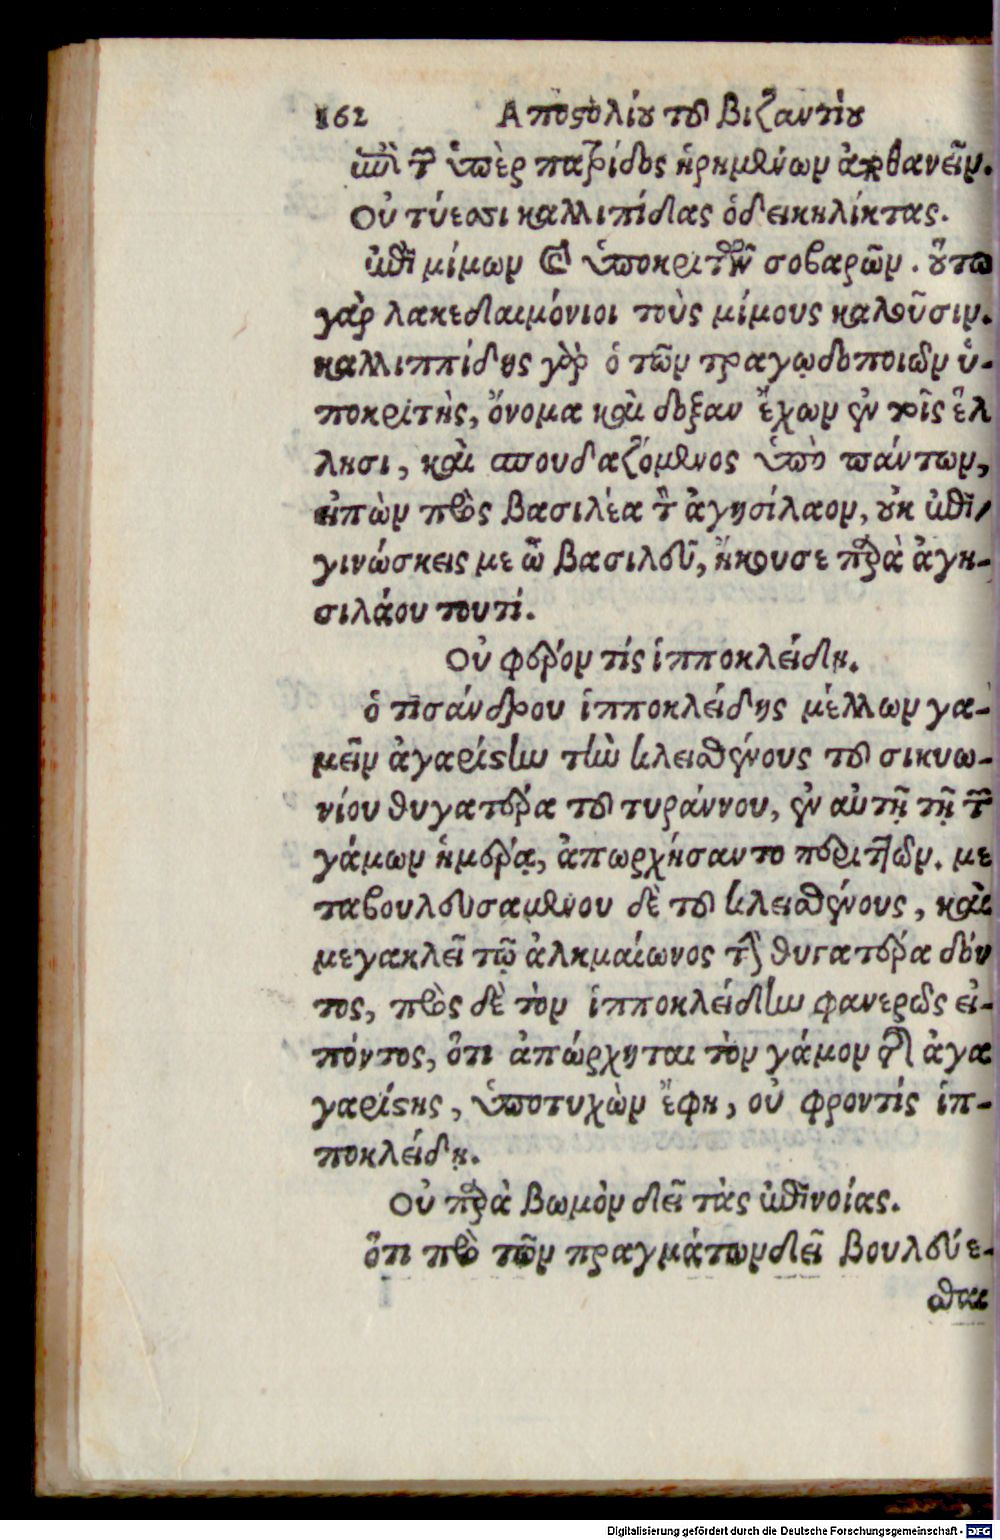 162 Ἀποστολίου τοῦ Βιζαντίου
ἐπὶ τῶν ὑπὲρ πατρίδος ἡρημένων ἀποθανεῖν.
Οὐ τύεσσι καλλιπίδας ὁ δεικηλίκτας.
ἐπὶ μίμων καὶ ὑποκριτῶν σοβαρῶν. οὕτω
γὰρ λακεδαιμόνιοι τοὺς μίμους καλοῦσιν.
καλλιππίδης γὰρ ὁ τῶν τραγῳδοποιῶν ὑ-
ποκριτὴς, ὄνομα καὶ δόξαν ἔχων ἐν τοῖς ἕλ
λησι, καὶ σπουδαζόμενος ὑπὸ πάντων,
εἰπὼν πρὸς βασιλέα τὸν ἀγησίλαον, οὐκ ἐπι/
γινώσκεις με ὦ βασιλεῦ, ἤκουσε παρὰ ἀγη-
σιλάου τουτί.
Οὐ φρόντις ἱπποκλείδῃ.
ὁ τισάνδρου ἱπποκλείδης μέλλων γα-
μεῖν ἀγαρίστην τὴν κλεισθένους τοῦ σικυω-
νίου θυγατέρα τοῦ τυράννου, ἐν αὐτῇ τῇ τῶν
γάμων ἡμέρᾳ, ἀπωρχήσαντο περιττῶν. με
ταβουλευσαμένου δὲ τοῦ κλεισθένους, καὶ
μεγακλεῖ τῷ ἀλκμαίωνος τὴν θυγατέρα δόν
τος, πρὸς δὲ τὸν ἱπποκλείδην φανερῶς εἰ-
πόντος, ὅτι ἀπώρχηται τὸν γάμον τῆς ἀγα
γαρίστης, ὑποτυχὼν ἔφη, οὐ φροντίς ἱπ-
ποκλείδῃ.
Οὐ παρὰ βωμὸν δεῖ τὰς ἐπινοίας.
ὅτι πρὸ τῶν πραγμάτων δεῖ βουλεύε-
σθαι
Digitalisierung gefördert durch die Deutsche Forschungsgemeinschaft - DFG